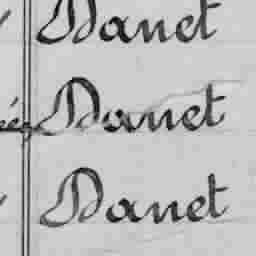 Danet
Danet
Danet